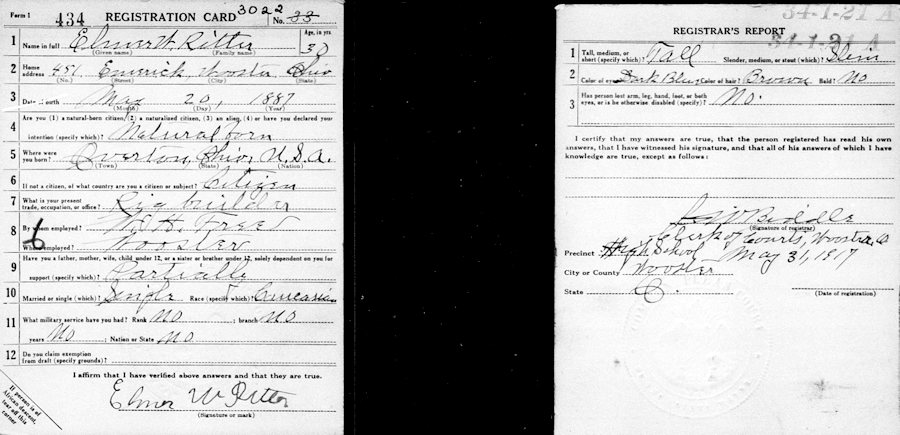 Form 1 434 REGISTRATION CARD 3022 No. 33
1 Name in full Elmer W. Ritter Age, in yrs. 30
(Given name) (Family name)
2 Home address 457 Emerick, Wooster, Ohio
(No.) (Street) (City) (State)
3 Date of birth May 20, 1887
(Month) (Day) (Year)
4 Are you (1) a natural-born citizen, (2) a naturalized citizen, (3) an alien, (4) or have you declared your
intention (specify which)? Natural born
5 Where were you born? Overton, Ohio, U.S.A.
(Town) (State) (Nation)
6 If not a citizen, of what country are you a citizen or subject? Citizen
7 What is your present trade, occupation, or office? Rig builder
8 By whom employed? Free
Where employed? Wooster
9 Have you a father, mother, wife, child under 12, or a sister or brother under 12, solely dependent on you for
support (specify which)? Partially
10 Married or single (which)? Single Race (specify which)? Caucasian
11 What military service have you had? Rank No ; branch No
years No ; Nation or State No
12 Do you claim exemption from draft (specify grounds)?
I affirm that I have verified above answers and that they are true.
Elmer W Ritter
(Signature or mark)
If person is of
African descent,
tear off this
corner
34-1-21 A
REGISTRAR'S REPORT
34-1-21 A
1 Tall, medium, or short (specify which)? Tall Slender, medium, or stout (which)? Slim
2 Color of eyes Dark Blue Color of hair? Brown Bald? No
3 Has person lost arm, leg, hand, foot, or both
eyes, or is he otherwise disabled (specify)? No.
I certify that my answers are true, that the person registered has read his own
answers, that I have witnessed his signature, and that all of his answers of which I have
knowledge are true, except as follows:
Biddle
(Signature of registrar)
Clerk of Courts, Wooster, O
Precinct High School May 31, 1917
City or County Wooster
State O.
(Date of registration)